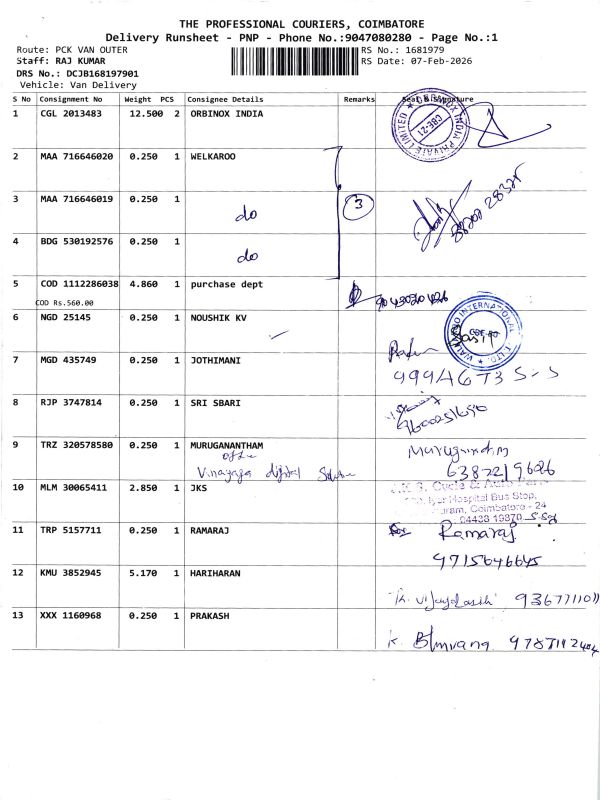 THE PROFESSIONAL COURIERS, COIMBATORE
Delivery Runsheet - PNP - Phone No.:9047080280 - Page No.:1
Route: PCK VAN OUTER
RS No.: 1681979
Staff: RAJ KUMAR
RS Date: 07-Feb-2026
DRS No.: DCJB168197901
Vehicle: Van Delivery
S No Consignment No Weight PCS Consignee Details Remarks Seal & Signature
1 CGL 2013483 12.500 2 ORBINOX INDIA
ORBINOX INDIA PRIVATE LIMITED CBE-21
2 MAA 716646020 0.250 1 WELKAROO
3 MAA 716646019 0.250 1 do 3
4 BDG 530192576 0.250 1 do
5 COD 1112286038 4.860 1 purchase dept
COD Rs.560.00
6 NGD 25145 0.250 1 NOUSHIK KV
INTERNATIONAL
7 MGD 435749 0.250 1 JOTHIMANI
8 RJP 3747814 0.250 1 SRI SBARI
9600251690
9 TRZ 320578580 0.250 1 MURUGANANTHAM
Vinayaga digital
6382219626
10 MLM 30065411 2.850 1 JKS
Hospital Bus Stop,
Coimbatore - 24
11 TRP 5157711 0.250 1 RAMARAJ Ramaraj
9715646645
12 KMU 3852945 5.170 1 HARIHARAN
13 XXX 1160968 0.250 1 PRAKASH